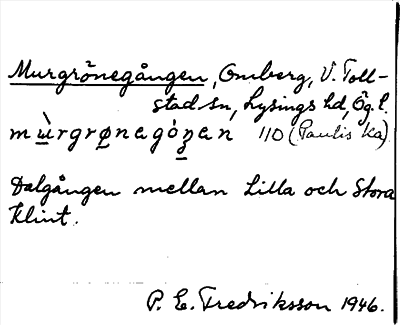 Murgrönegången, Omberg, V. Toll-
stad sn, Lysings hd, Ög. l.
mùrgrønagóŋen 110 (Paulis ka)
Dalgången mellan Lilla och Stora
Klint.
P. E. Fredriksson 1946.